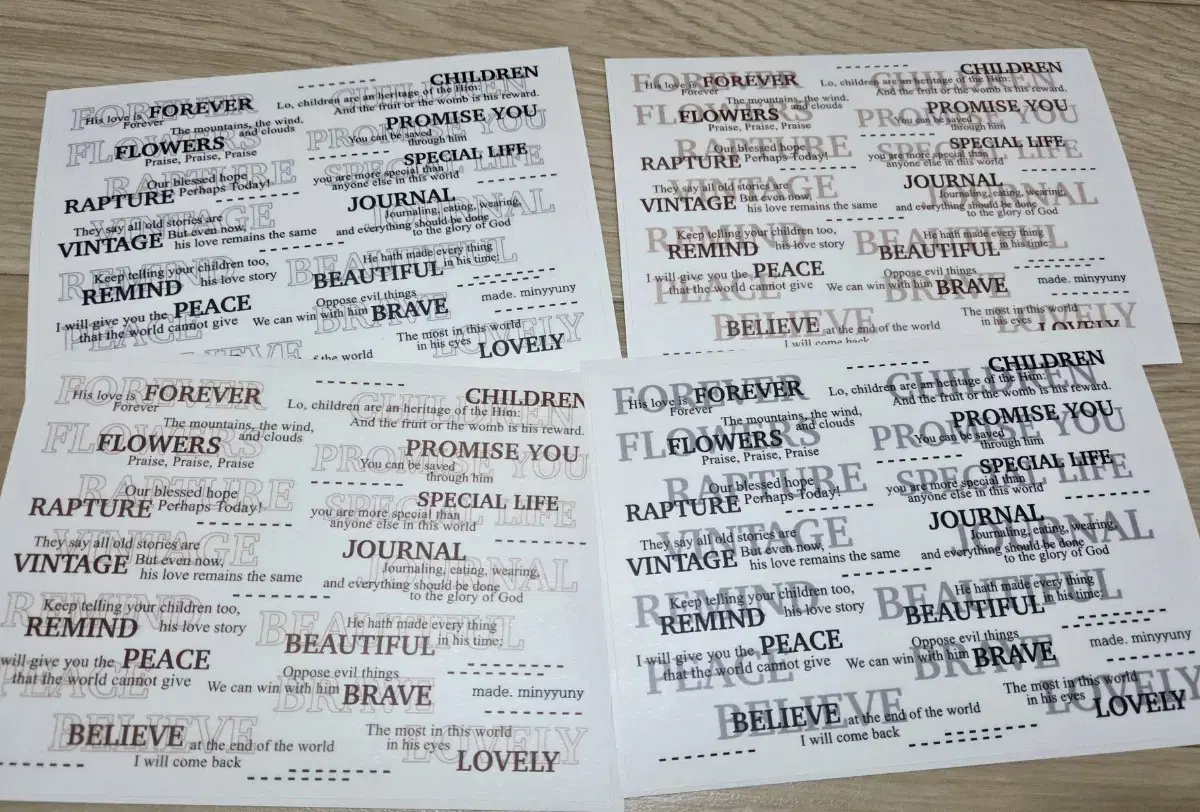 CHILDREN
His love is FOREVER
Forever
Lo, children are an heritage of the Him:
And the fruit or the womb is his reward.
The mountains, the wind,
and clouds
FLOWERS
Praise, Praise, Praise
PROMISE YOU
You can be saved
through him
Our blessed hope
RAPTURE Perhaps Today!
SPECIAL LIFE
you are more special than
anyone else in this world
They say all old stories are
VINTAGE But even now,
his love remains the same
JOURNAL
Journaling, eating, wearing,
and everything should be done
to the glory of God
Keep telling your children too,
REMIND his love story
He hath made every thing
BEAUTIFUL in his time;
I will give you the PEACE
that the world cannot give
Oppose evil things
We can win with him BRAVE
made. minyyuny
f the world
The most in this world
in his eyes
LOVELY
CHILDREN
His love is FOREVER
Forever
Lo, children are an heritage of the Him:
And the fruit or the womb is his reward.
The mountains, the wind,
and clouds
FLOWERS
Praise, Praise, Praise
PROMISE YOU
You can be saved
through him
Our blessed hope
RAPTURE Perhaps Today!
SPECIAL LIFE
you are more special than
anyone else in this world
They say all old stories are
VINTAGE But even now,
his love remains the same
JOURNAL
Journaling, eating, wearing,
and everything should be done
to the glory of God
Keep telling your children too,
REMIND his love story
He hath made every thing
BEAUTIFUL in his time;
I will give you the PEACE
that the world cannot give
Oppose evil things
We can win with him BRAVE
made. minyyuny
BELIEVE at the end of the world
I will come back
The most in this world
in his eyes
LOVELY
CHILDREN
His love is FOREVER
Forever
Lo, children are an heritage of the Him:
And the fruit or the womb is his reward.
The mountains, the wind,
and clouds
FLOWERS
Praise, Praise, Praise
PROMISE YOU
You can be saved
through him
Our blessed hope
RAPTURE Perhaps Today!
SPECIAL LIFE
you are more special than
anyone else in this world
They say all old stories are
VINTAGE But even now,
his love remains the same
JOURNAL
Journaling, eating, wearing,
and everything should be done
to the glory of God
Keep telling your children too,
REMIND his love story
He hath made every thing
BEAUTIFUL in his time;
will give you the PEACE
that the world cannot give
Oppose evil things
We can win with him BRAVE
made. minyyuny
BELIEVE at the end of the world
I will come back
The most in this world
in his eyes
LOVELY
CHILDREN
His love is FOREVER
Forever
Lo, children are an heritage of the Him:
And the fruit or the womb is his reward.
The mountains, the wind,
and clouds
FLOWERS
Praise, Praise, Praise
PROMISE YOU
You can be saved
through him
Our blessed hope
RAPTURE Perhaps Today!
SPECIAL LIFE
you are more special than
anyone else in this world
They say all old stories are
VINTAGE But even now,
his love remains the same
JOURNAL
Journaling, eating, wearing,
and everything should be done
to the glory of God
Keep telling your children too,
REMIND his love story
He hath made every thing
BEAUTIFUL in his time;
I will give you the PEACE
that the world cannot give
Oppose evil things
We can win with him BRAVE
made. minyyuny
BELIEVE at the end of the world
I will come back
The most in this world
in his eyes
LOVELY